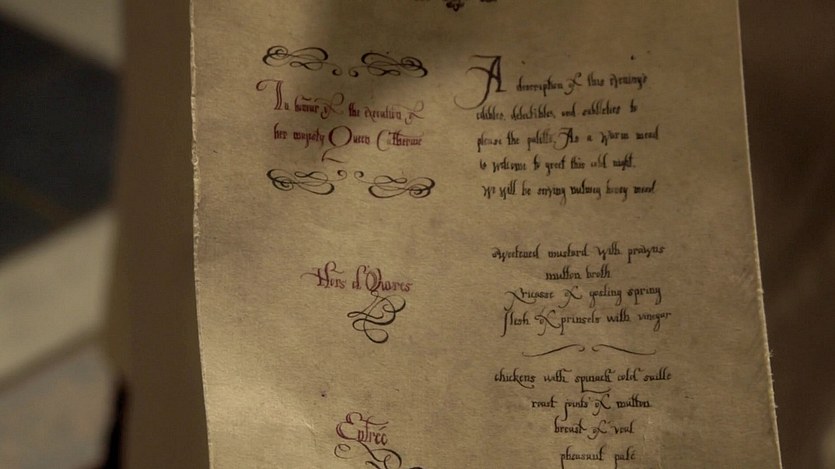 In honour of the execution of
her majesty Queen Catherine
A description of this evening's
edibles, delectibles, and eubleties to
please the palette, As a warm mead
is welcome to greet this cold night.
We will be serving nutmeg honey mead
Hors d'Uvores
Sweetened mustard with prawns
mutton broth
of gosling spring
flesh of prinsels with vinegar
Entrée
chickens with spinach cold
roast joints of mutton
breast of veal
pheasant paté